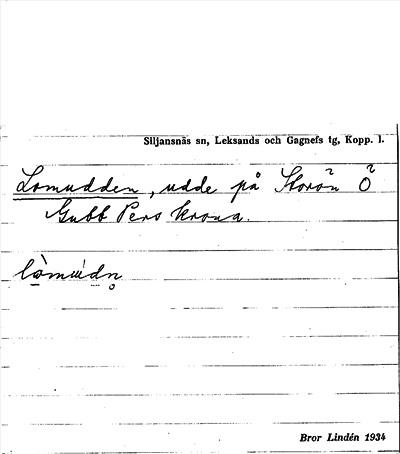 Siljansnäs sn, Leksands och Gagnefs tg, Kopp. l.
Lomudden, udde på Storön Ö
Gubb Pers krona.
lòmúdn̥
Bror Lindén 1934